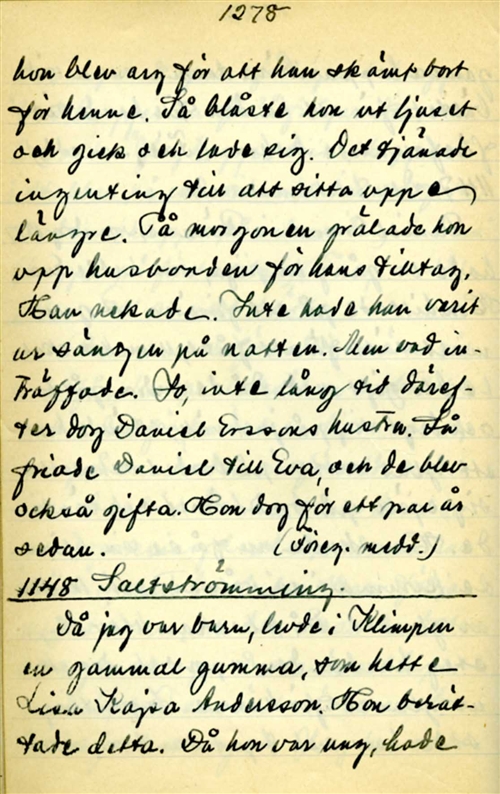 1278
hon blev arg för att han skämt bort
för henne. Så blåste hon ut ljuset
och gick och lade sig. Det tjänade
ingenting till att sitta uppe
längre. På morgonen grälade hon
upp husbonden för hans tilltag.
Han nekade. Inte hade han varit
ur sängen på natten. Men vad in-
träffade. Jo, inte lång tid däref-
ter dog Daniel Erssons hustru. Så
friade Daniel till Eva, och de blev
också gifta. Hon dog för ett par år
sedan. (Föreg. medd.)
1148 Saltströmming.
Då jag var barn, levde i Klimpen
en gammal gumma, som hette
Lisa Kajsa Andersson. Hon berät-
tade detta. Då hon var ung, hade